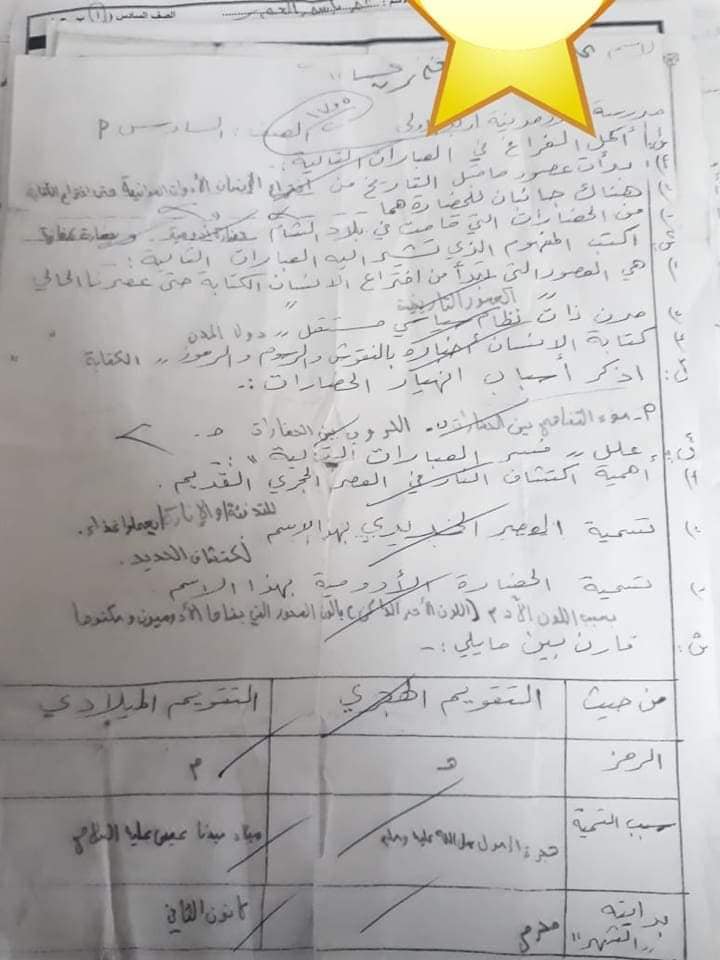 الصف السادس (P) ب
مدرسة اربد الاولى
الصف: السادس P
س١: أكمل الفراغ في العبارات التالية:
١) بدأت عصور ماقبل التاريخ من الإنسان الأدوات البدائية حتى اختراع الكتابة
٢) هناك جانبان للحضارة هما
٣) من الحضارات التي قامت في بلاد الشام
س٢: اكتب المفهوم الذي تشير اليه العبارات التالية:
١) هي العصور التي تبدأ من اختراع الانسان الكتابة حتى عصرنا الحالي
العصور التاريخية
٢) مدن ذات نظام سياسي مستقل ,, دولة المدن
٣) كتابة الانسان أخباره بالنقوش والرسوم والرموز ,, الكتابة
س٣: اذكر أسباب انهيار الحضارات :-
P- بين الحضارات ب- الحروب بين الحضارات ج-
س٤: علل ,, فسر العبارات التالية :
١) أهمية اكتشاف النار في العصر الحجري القديم.
للتدفئة والإنارة
٢) تسمية العصر الحديدي بهذا الاسم
لكتشاف الحديد.
٣) تسمية الحضارة الأدومية بهذا الاسم
بسبب اللون الأدم (اللون الأحمر الداكن) التي بناها الأدوميون
س٥: قارن بين مايلي :-
من حيث التقويم الهجري التقويم الميلادي
الرمز هـ م
سبب التسمية هجرة الرسول صلى الله عليه وسلم ميلاد سيدنا عيسى عليه السلام
بدايته ,,الشهر,, محرم كانون الثاني